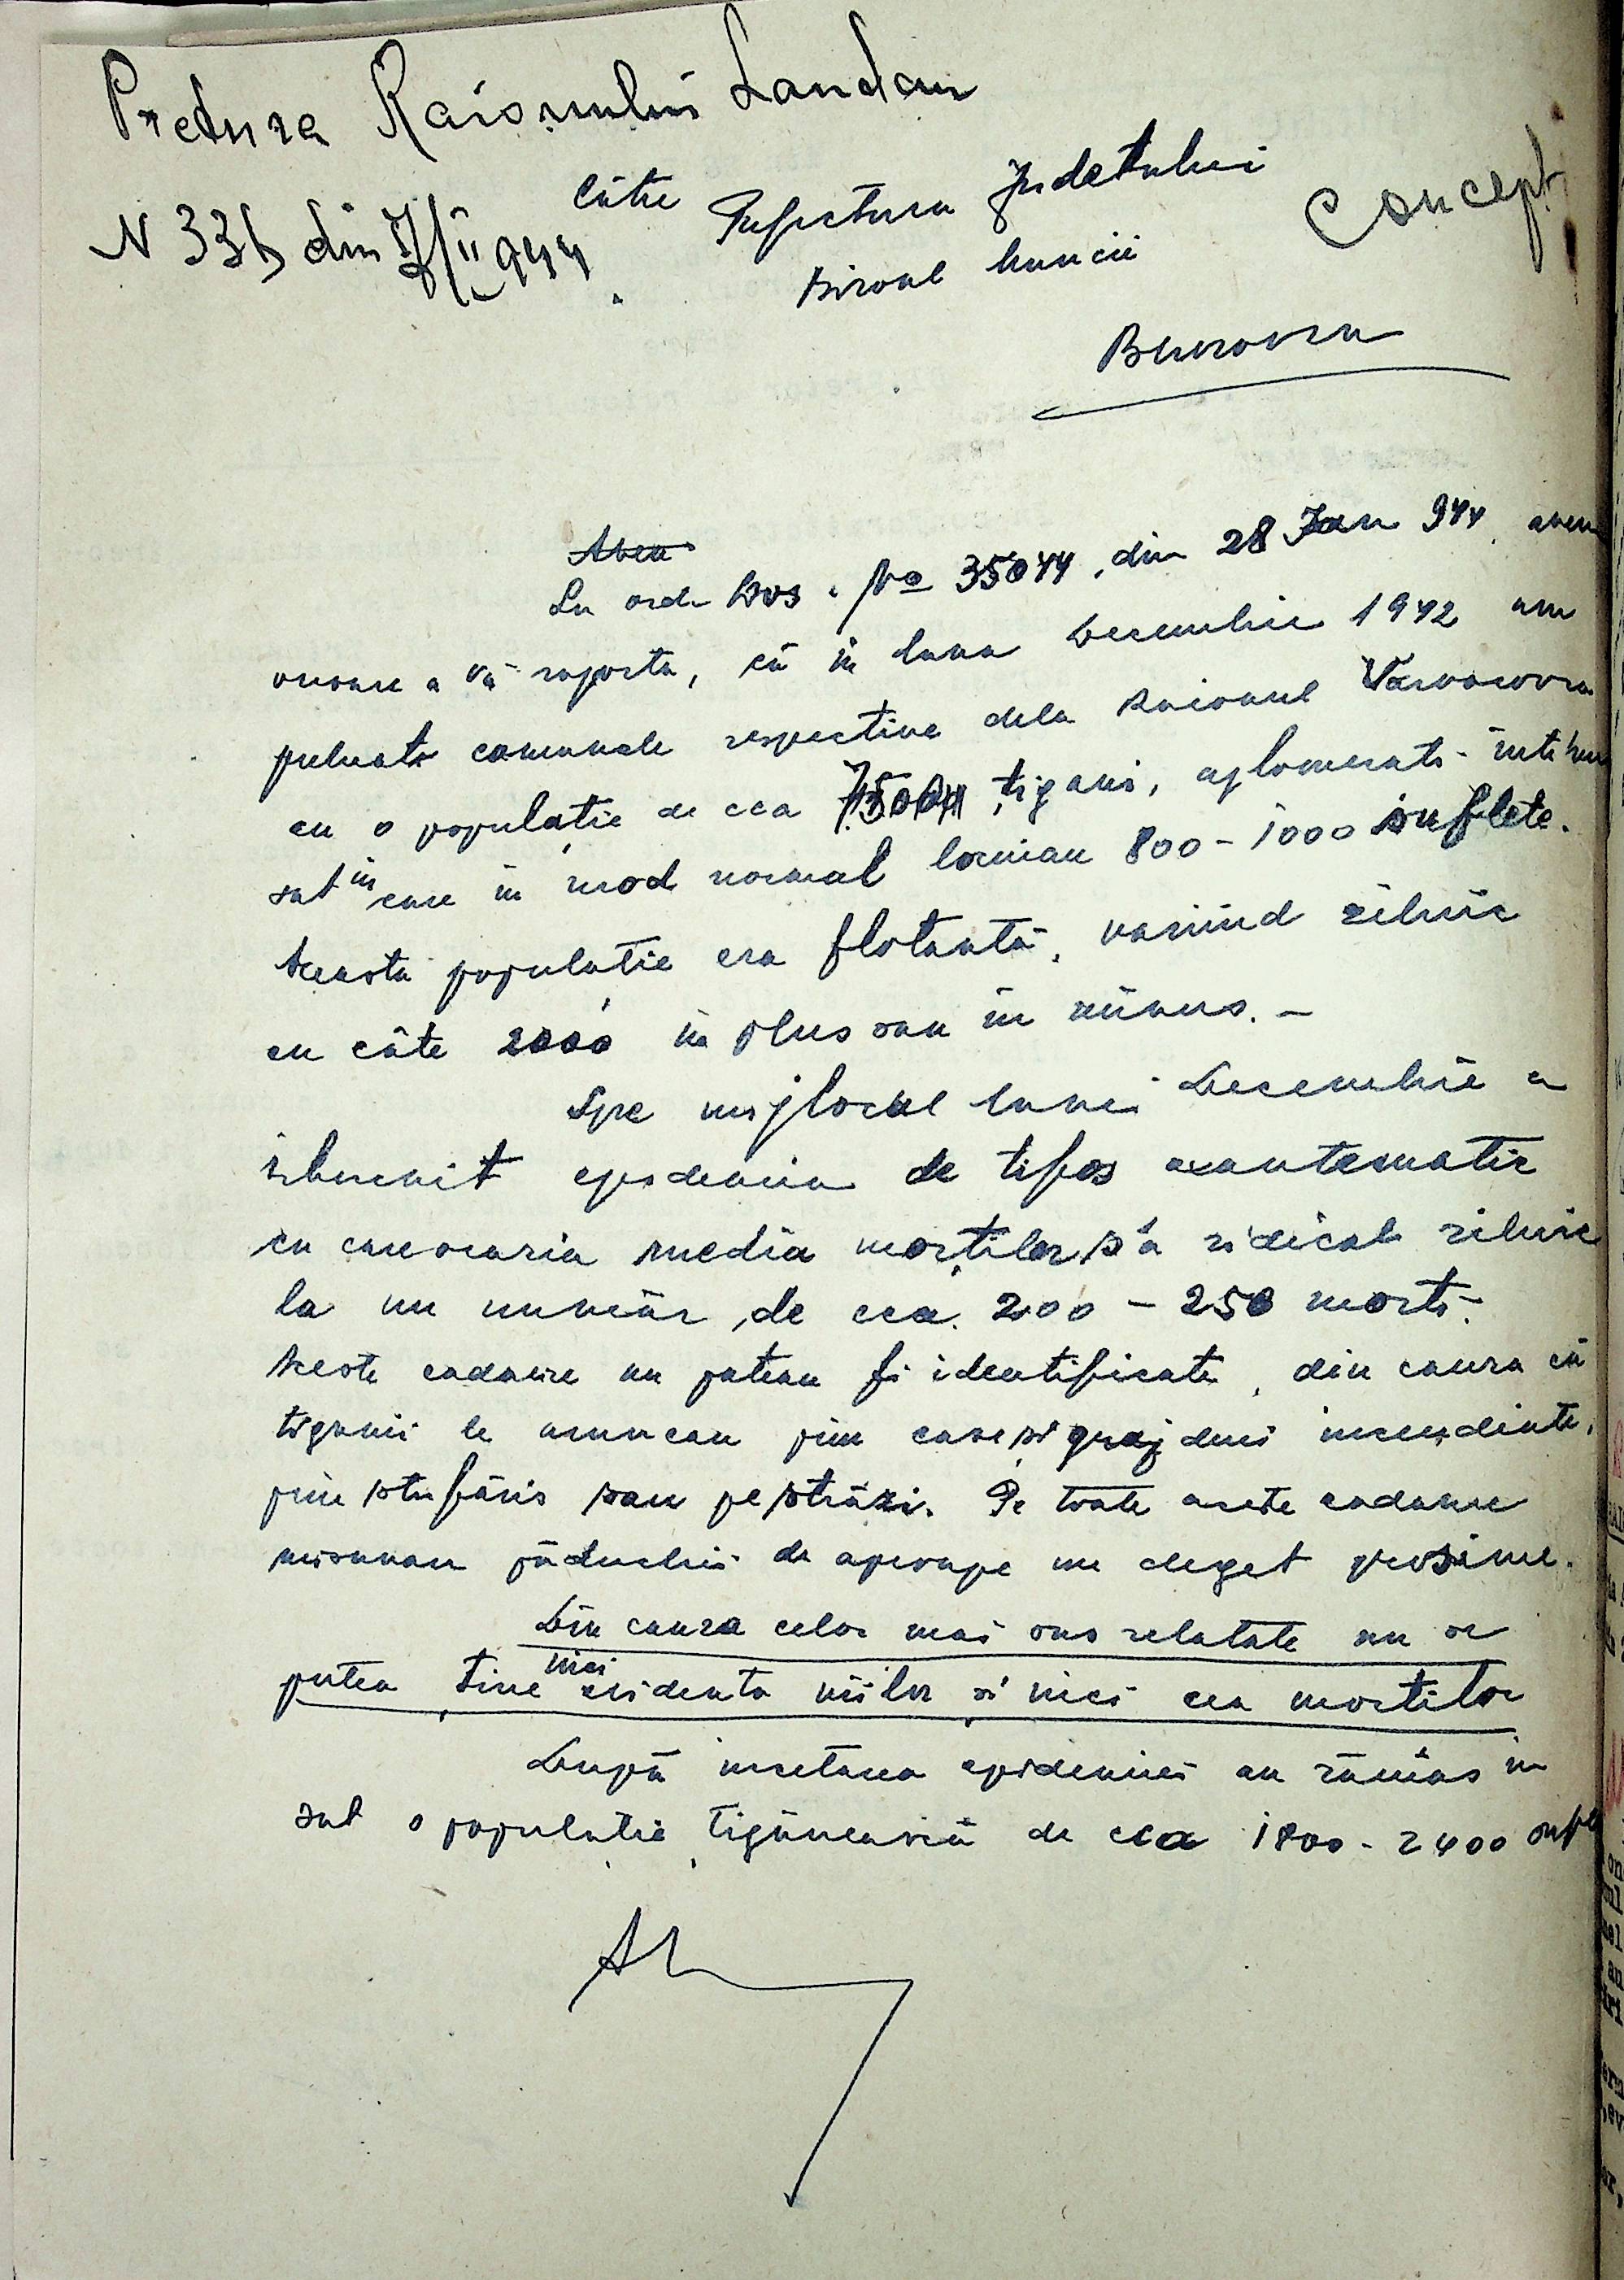 Pretura Raionului Landau
Concept
N 336 din 7/II 944
Către Prefectura Județului
Biroul Muncii
Berezovca
Avem
La ord. Dvs. No 35044, din 28 Jan 944, avem
onoare a vă raporta, că în luna Decembrie 1942 am
preluat comunele respective dela Raionul Varvarovca
cu o populație de cca 7500 țigani, aglomerați într'un
sat în care în mod normal locuiau 800 - 1000 suflete.
Aceasta populație era flotantă, variind zilnic
cu câte 2000 în plus sau în minus. -
Spre mijlocul lunei Decembrie a
isbucnit epidemia de tifos exantematic
cu care ocazia media morților s'a ridicat zilnic
la un număr de cca. 200 - 250 morți.
Aceste cadavre nu puteau fi identificate, din cauza că
țiganii le aruncau prin case și grajduri incendiate,
prin stufăris sau pe străzi. Pe toate aceste cadavre
misunau păduchii de aproape un deget grosime.
Din cauza celor mai sus relatate nu se
putea ține nici evidența viilor și nici cea morților
După incetarea epidemiei au rămas in
sat o populație țigănească de cca 1800 - 2400